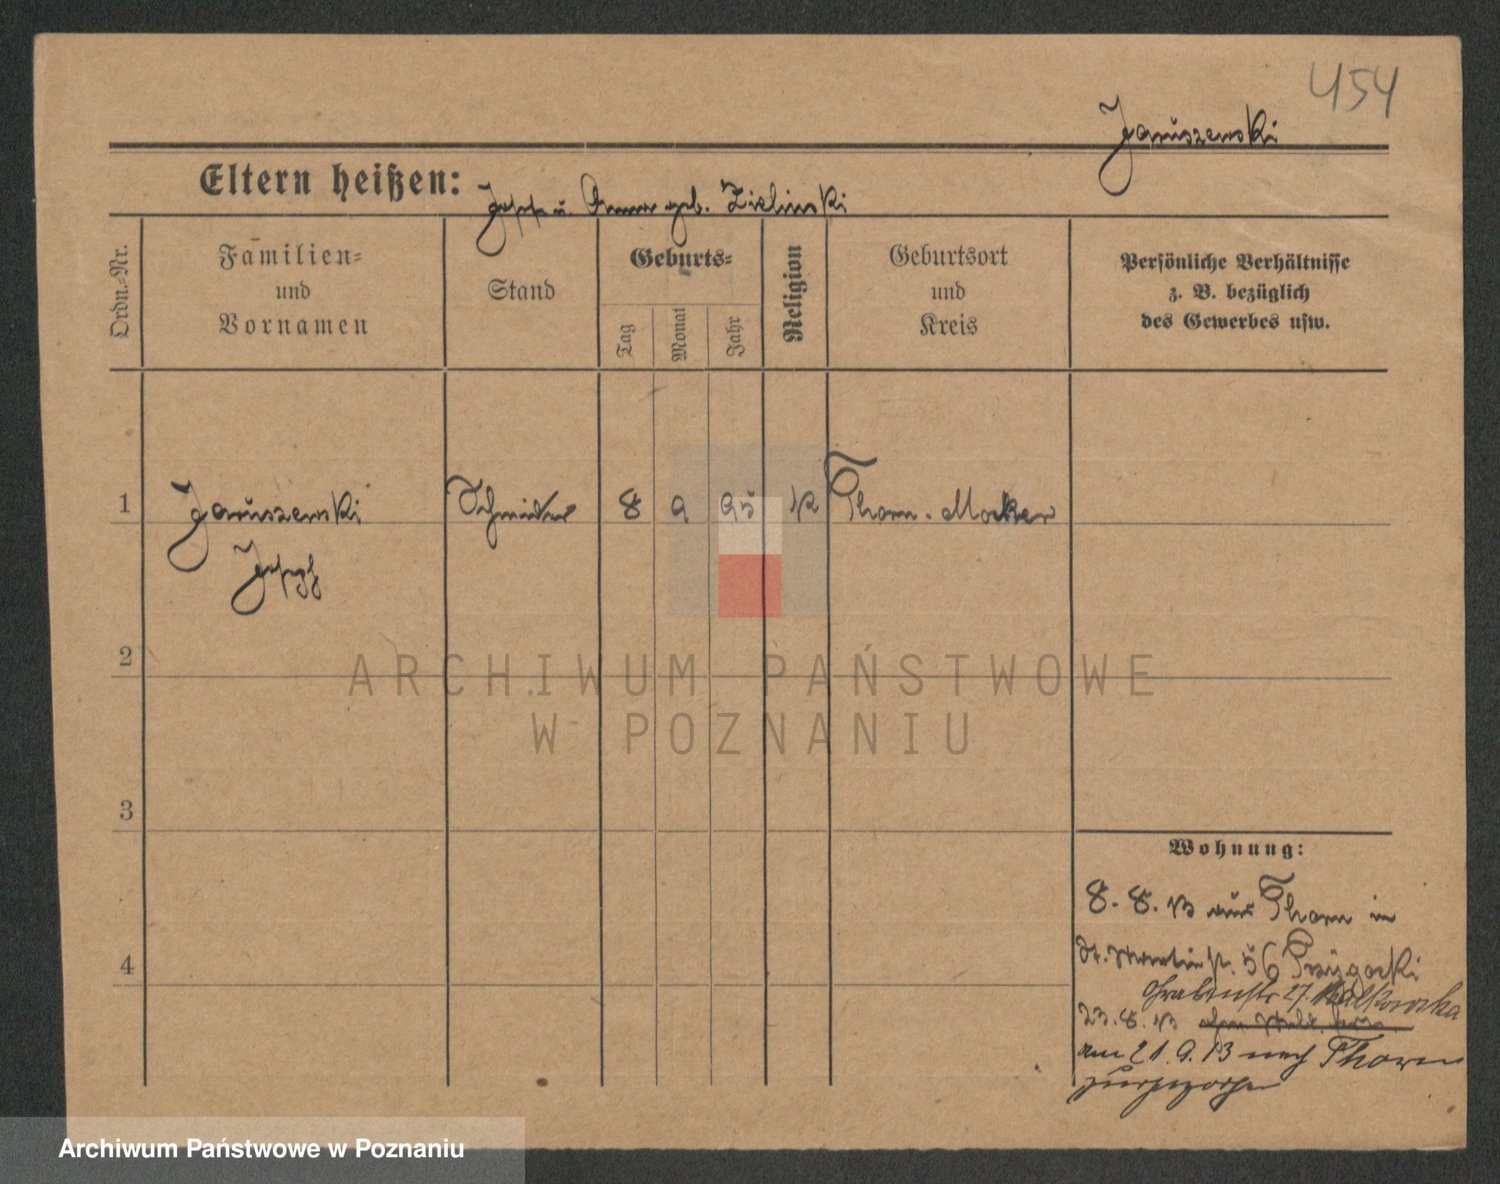 454
Januszewski
Eltern heißen: Joseph u. Anna geb. Zielinski
Ordn.-Nr.
Familien-
und
Vornamen
Stand
Geburts-
Tag
Monat
Jahr
Religion
Geburtsort
und
Kreis
Persönliche Verhältnisse
z. B. bezüglich
des Gewerbes usw.
1 Januszewski Schneider 8 9 95 K Thorn - Mocker
Joseph
2
3
4
Wohnung:
8. 8. 13 aus Thorn in
St. Martinstr. 56 Przygocki
Grabenstr. 27. Malkowska
23. 8. 13
am 21. 9. 13 nach Thorn
ARCHIWUM PAŃSTWOWE
W POZNANIU
Archiwum Państwowe w Poznaniu